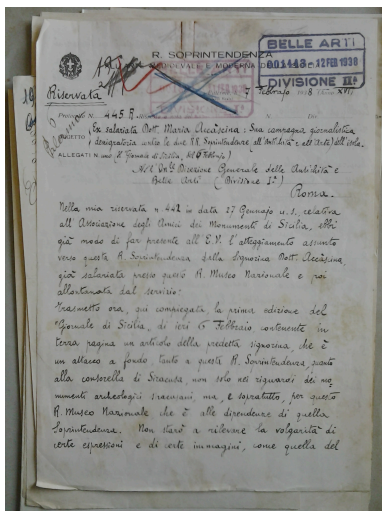 R. SOPRINTENDENZA
MEDIOEVALE E MODERNA
BELLE ARTI
001448 12 FEB 1938
DIVISIONE IIª
Riservata
7 Febbraio 1938 XVI
PROT. N. 445 R.
OGGETTO Ex salariata Dott. Maria Accàscina: Sua campagna giornalistica
denigratoria contro le due RR. Soprintendenze all'Antichità e all'Arte dell'isola.
ALLEGATI N. uno (Il Giornale di Sicilia, del 6 Febbraio)
Alla On. Direzione Generale delle Antichità e
Belle Arti (Divisione IIª)
Roma.
Nella mia riservata n. 442 in data 27 Gennajo u.s., relativa
all'Associazione degli Amici dei Monumenti di Sicilia, ebbi
già modo di far presente all'E.V. l'atteggiamento assunto
verso questa R. Soprintendenza dalla signorina Dott. Accàsina,
già salariata presso questo R. Museo Nazionale e poi
allontanata dal servizio.
Trasmetto ora, qui compiegata, la prima edizione del
"Giornale di Sicilia" di ieri 6 Febbraio contenente in
terza pagina un articolo della predetta signorina che è
un attacco a fondo, tanto a questa R. Soprintendenza, quanto
alla consorella di Siracusa, non solo nei riguardi dei mo-
numenti archeologici siracusani, ma, e sopratutto, per questo
R. Museo Nazionale che è alle dipendenze di quella
Soprintendenza. Non starò a rilevare la volgarità di
certe espressioni e di certe immagini, come quella del